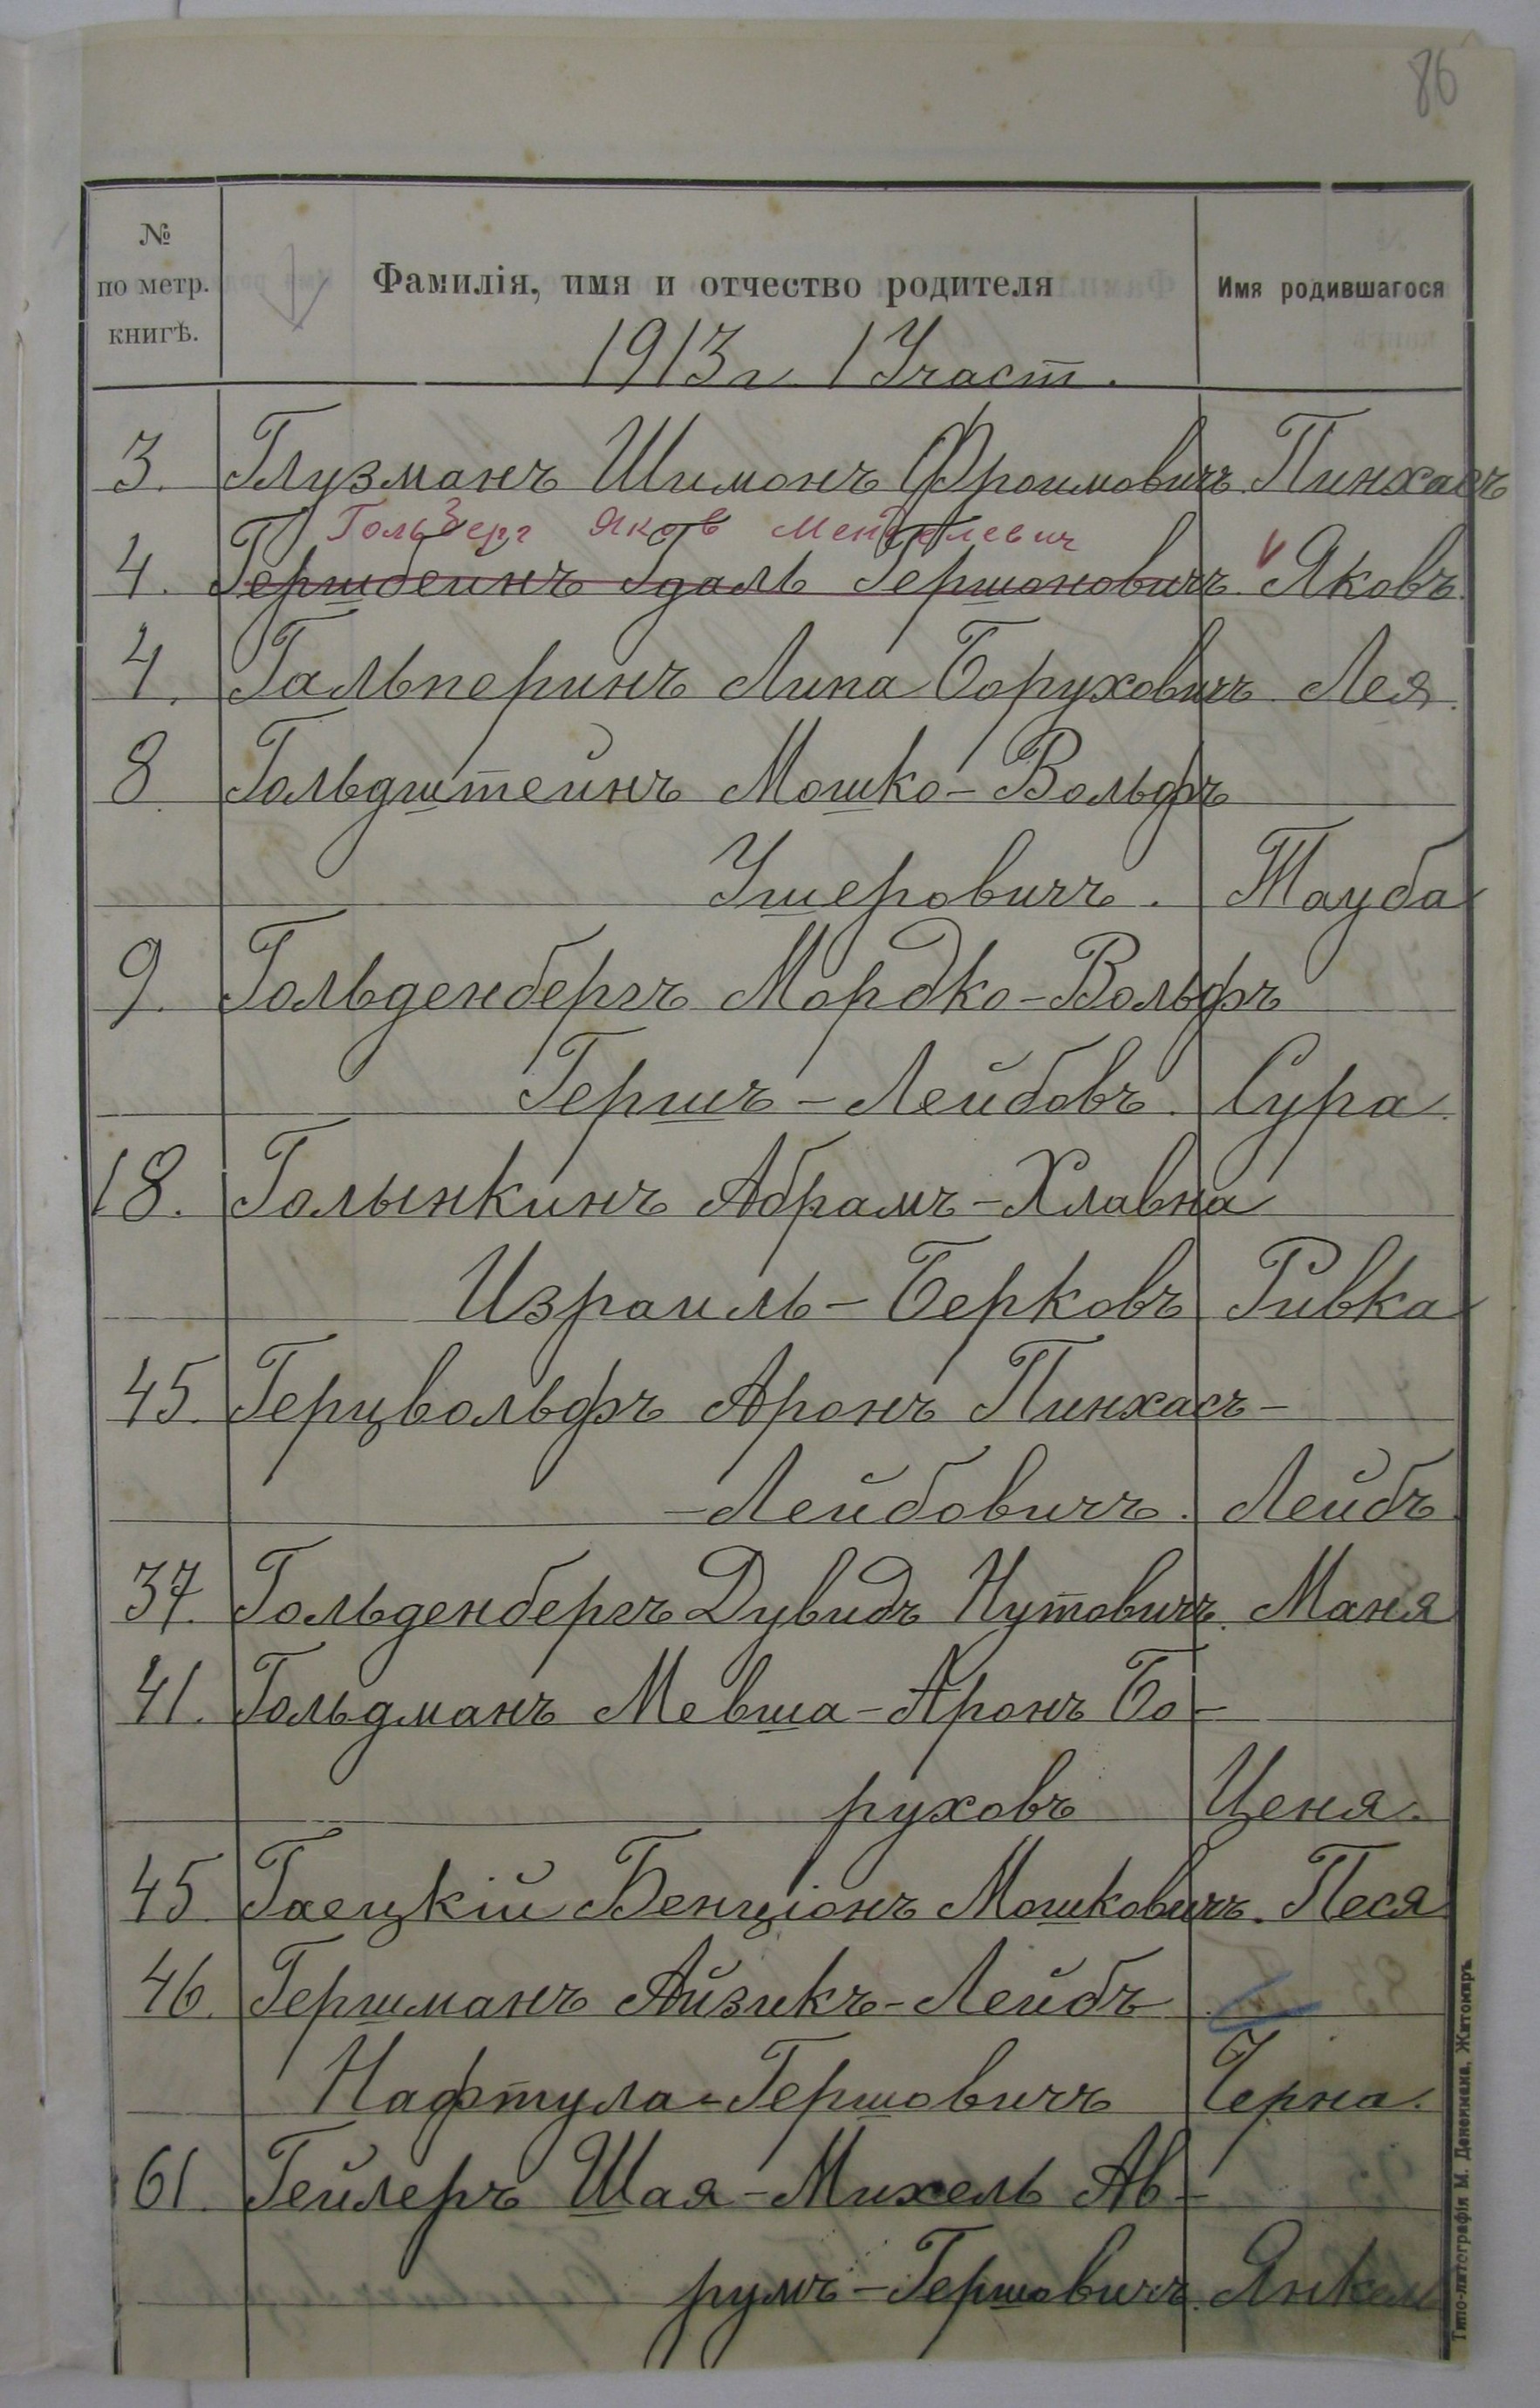 86
№ по метр. книгѣ.
Фамилія, имя и отчество родителя
Имя родившагося
1913 г. 1 Участ.
3. Глузманъ Шимонъ Фроимовичъ. Пинхасъ
Гольдберг Яков Менделевич
4. Гершбейнъ Гдаль Гершоновичъ. V Яковъ.
4. Гальперинъ Липа Боруховичъ. Лея.
8. Гольдштейнъ Мошко-Вольфъ
Ушеровичъ. Тауба
9. Гольденбергъ Мордко-Вольфъ
Гершъ-Лейбовъ. Сура.
18. Голынкинъ Абрамъ-Хлавна
Израиль-Берковъ Ривка
45. Герцвольфъ Аронъ Пинхасъ-
-Лейбовичъ. Лейбъ.
37. Гольденбергъ Дувидъ Нутовичъ. Маня
41. Гольдманъ Мевша-Аронъ Бо-
руховъ Ценя.
45. Гаецкій Бенціонъ Мошковичъ. Песя
46. Гершманъ Айзикъ-Лейбъ
Нафтула-Гершовичъ Черна.
61. Гейлеръ Шая-Михель Ав-
румъ-Гершовичъ. Янкель
Типо-литографія М. Дененмана, Житомиръ